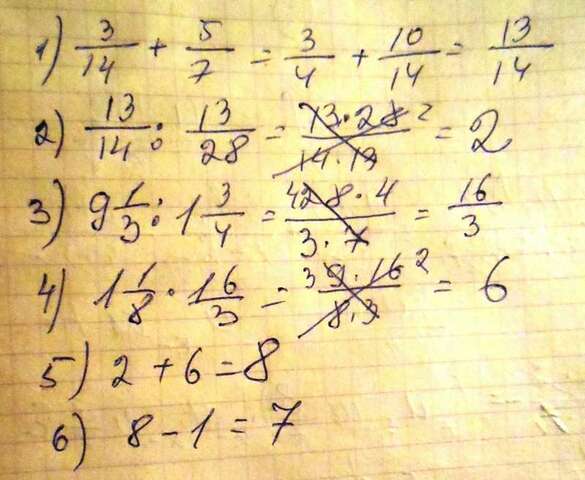 1) 3/14 + 5/7 = 3/4 + 10/14 = 13/14
2) 13/14 : 13/28 = 13·28 2/14·13 = 2
3) 9 1/3 : 1 3/4 = 4 28·4/3·7 = 16/3
4) 1 1/8 · 16/3 = 3 9·16 2/8·3 = 6
5) 2 + 6 = 8
6) 8 - 1 = 7